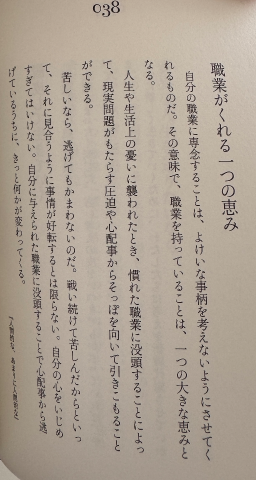 038
職業がくれる一つの恵み
自分の職業に専念することは、よけいな事柄を考えないようにさせてく
れるものだ。その意味で、職業を持っていることは、一つの大きな恵みと
なる。
人生や生活上の憂いに襲われたとき、慣れた職業に没頭することによっ
て、現実問題がもたらす圧迫や心配事からそっぽを向いて引きこもること
ができる。
苦しいなら、逃げてもかまわないのだ。戦い続けて苦しんだからといっ
て、それに見合うように事情が好転するとは限らない。自分の心をいじめ
すぎてはいけない。自分に与えられた職業に没頭することで心配事から逃
げているうちに、きっと何かが変わってくる。
『人間的な、あまりに人間的な』